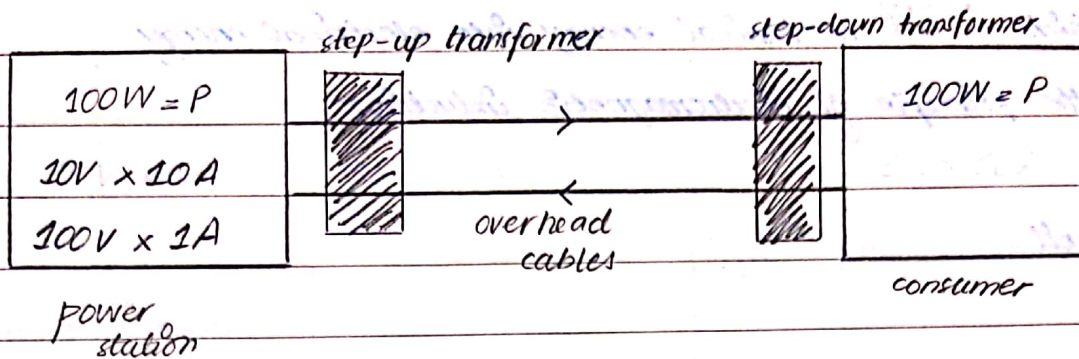 step-up transformer
step-down transformer
100W = P
100W = P
10V × 10A
100V × 1A
overhead
cables
consumer
power
station